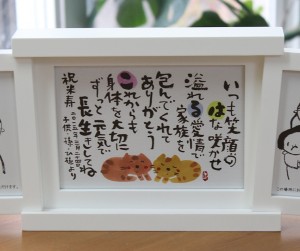 いつも笑顔の
はな咲かせ
溢れる愛情で
家族を
包んでくれて
ありがとう
これからも
身体を大切に
ずっと元気で
長生きしてね
祝 米寿